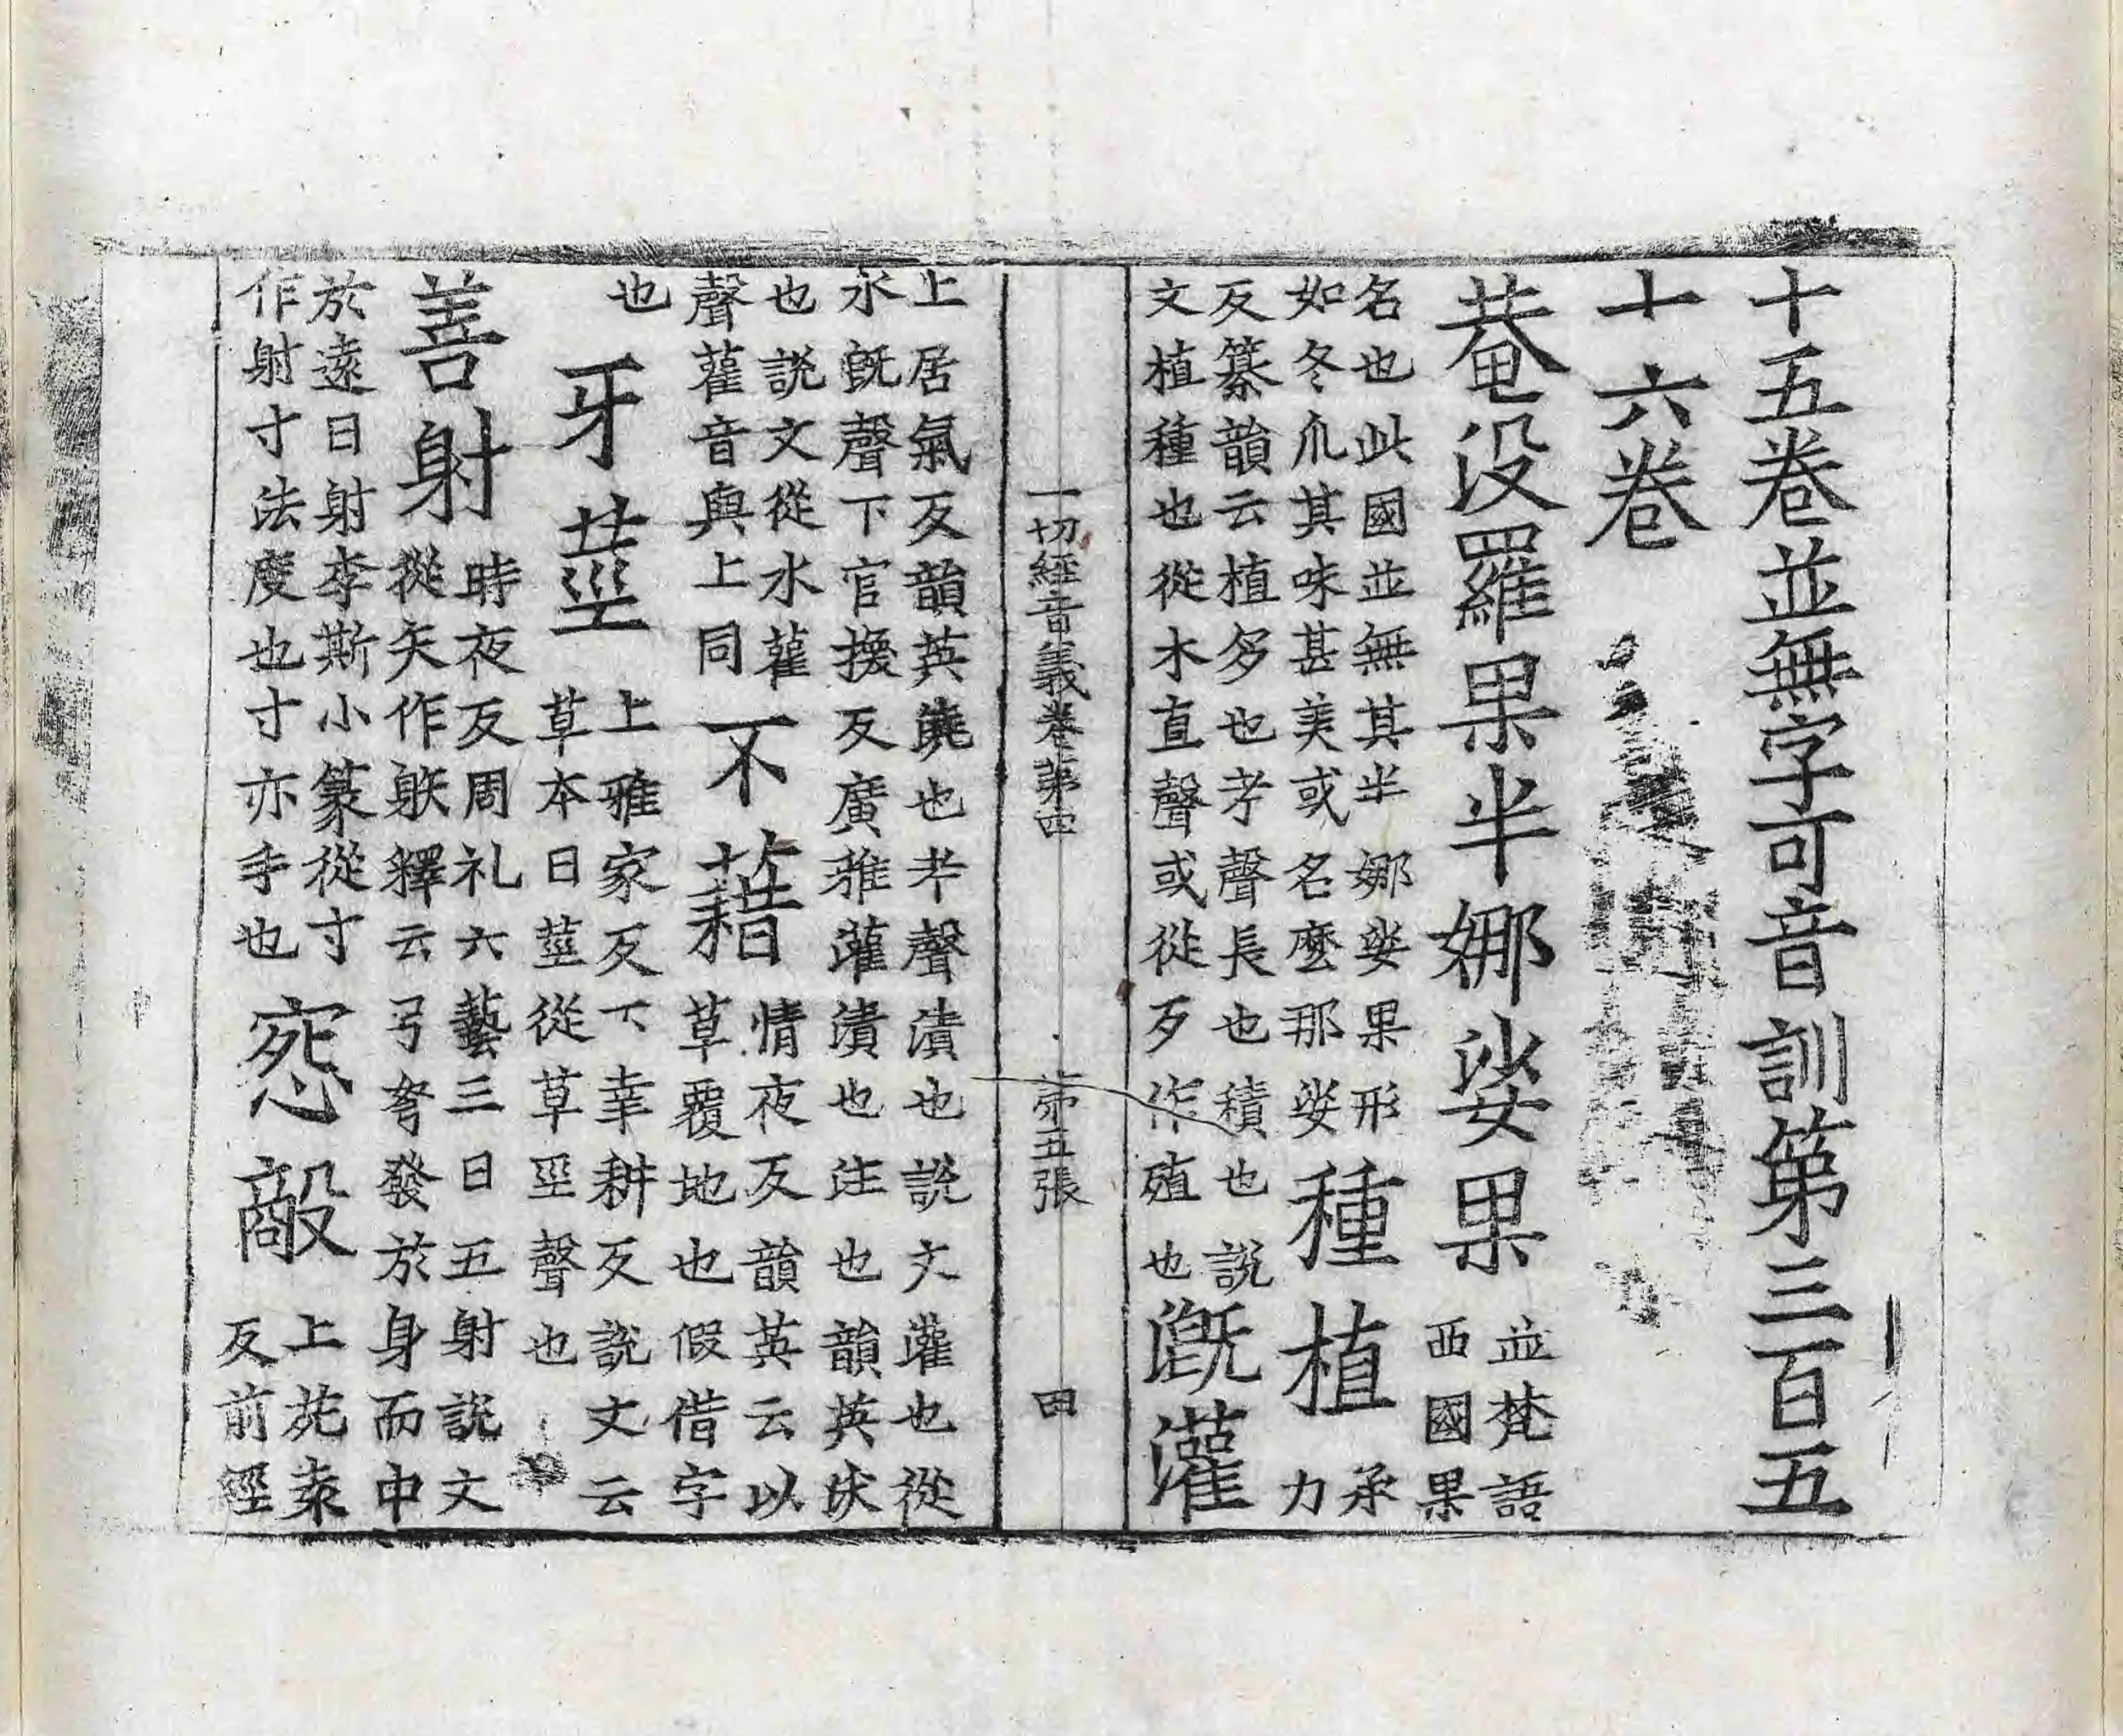 十五卷並無字可音訓第三百五
十六卷
菴没羅果半娜娑果
並梵語
西國果
名也此國並無其半娜娑果形
如冬瓜其味甚美或名麼那娑
種植
承
力
反纂韻云植多也考聲長也積也説
文植種也從木直聲或從歹作殖也
溉灌
一切經音義卷第四 第五張 田
上居氣反韻英澆也考聲漬也説文灌也從
水旣聲下官換反廣雅灌漬也注也韻英沃
也説文從水雚
聲雚音與上同
不藉
情夜反韻英云以
草覆地也假借字
也
牙莖
上雅家反下幸耕反説文云
草本曰莖從草巠聲也
善射
時夜反周礼六藝三曰五射説文
從矢作䠶釋云弓弩發於身而中
於遠曰射李斯小篆從寸
作射寸法度也寸亦手也
怨敵
上苑袁
反前經